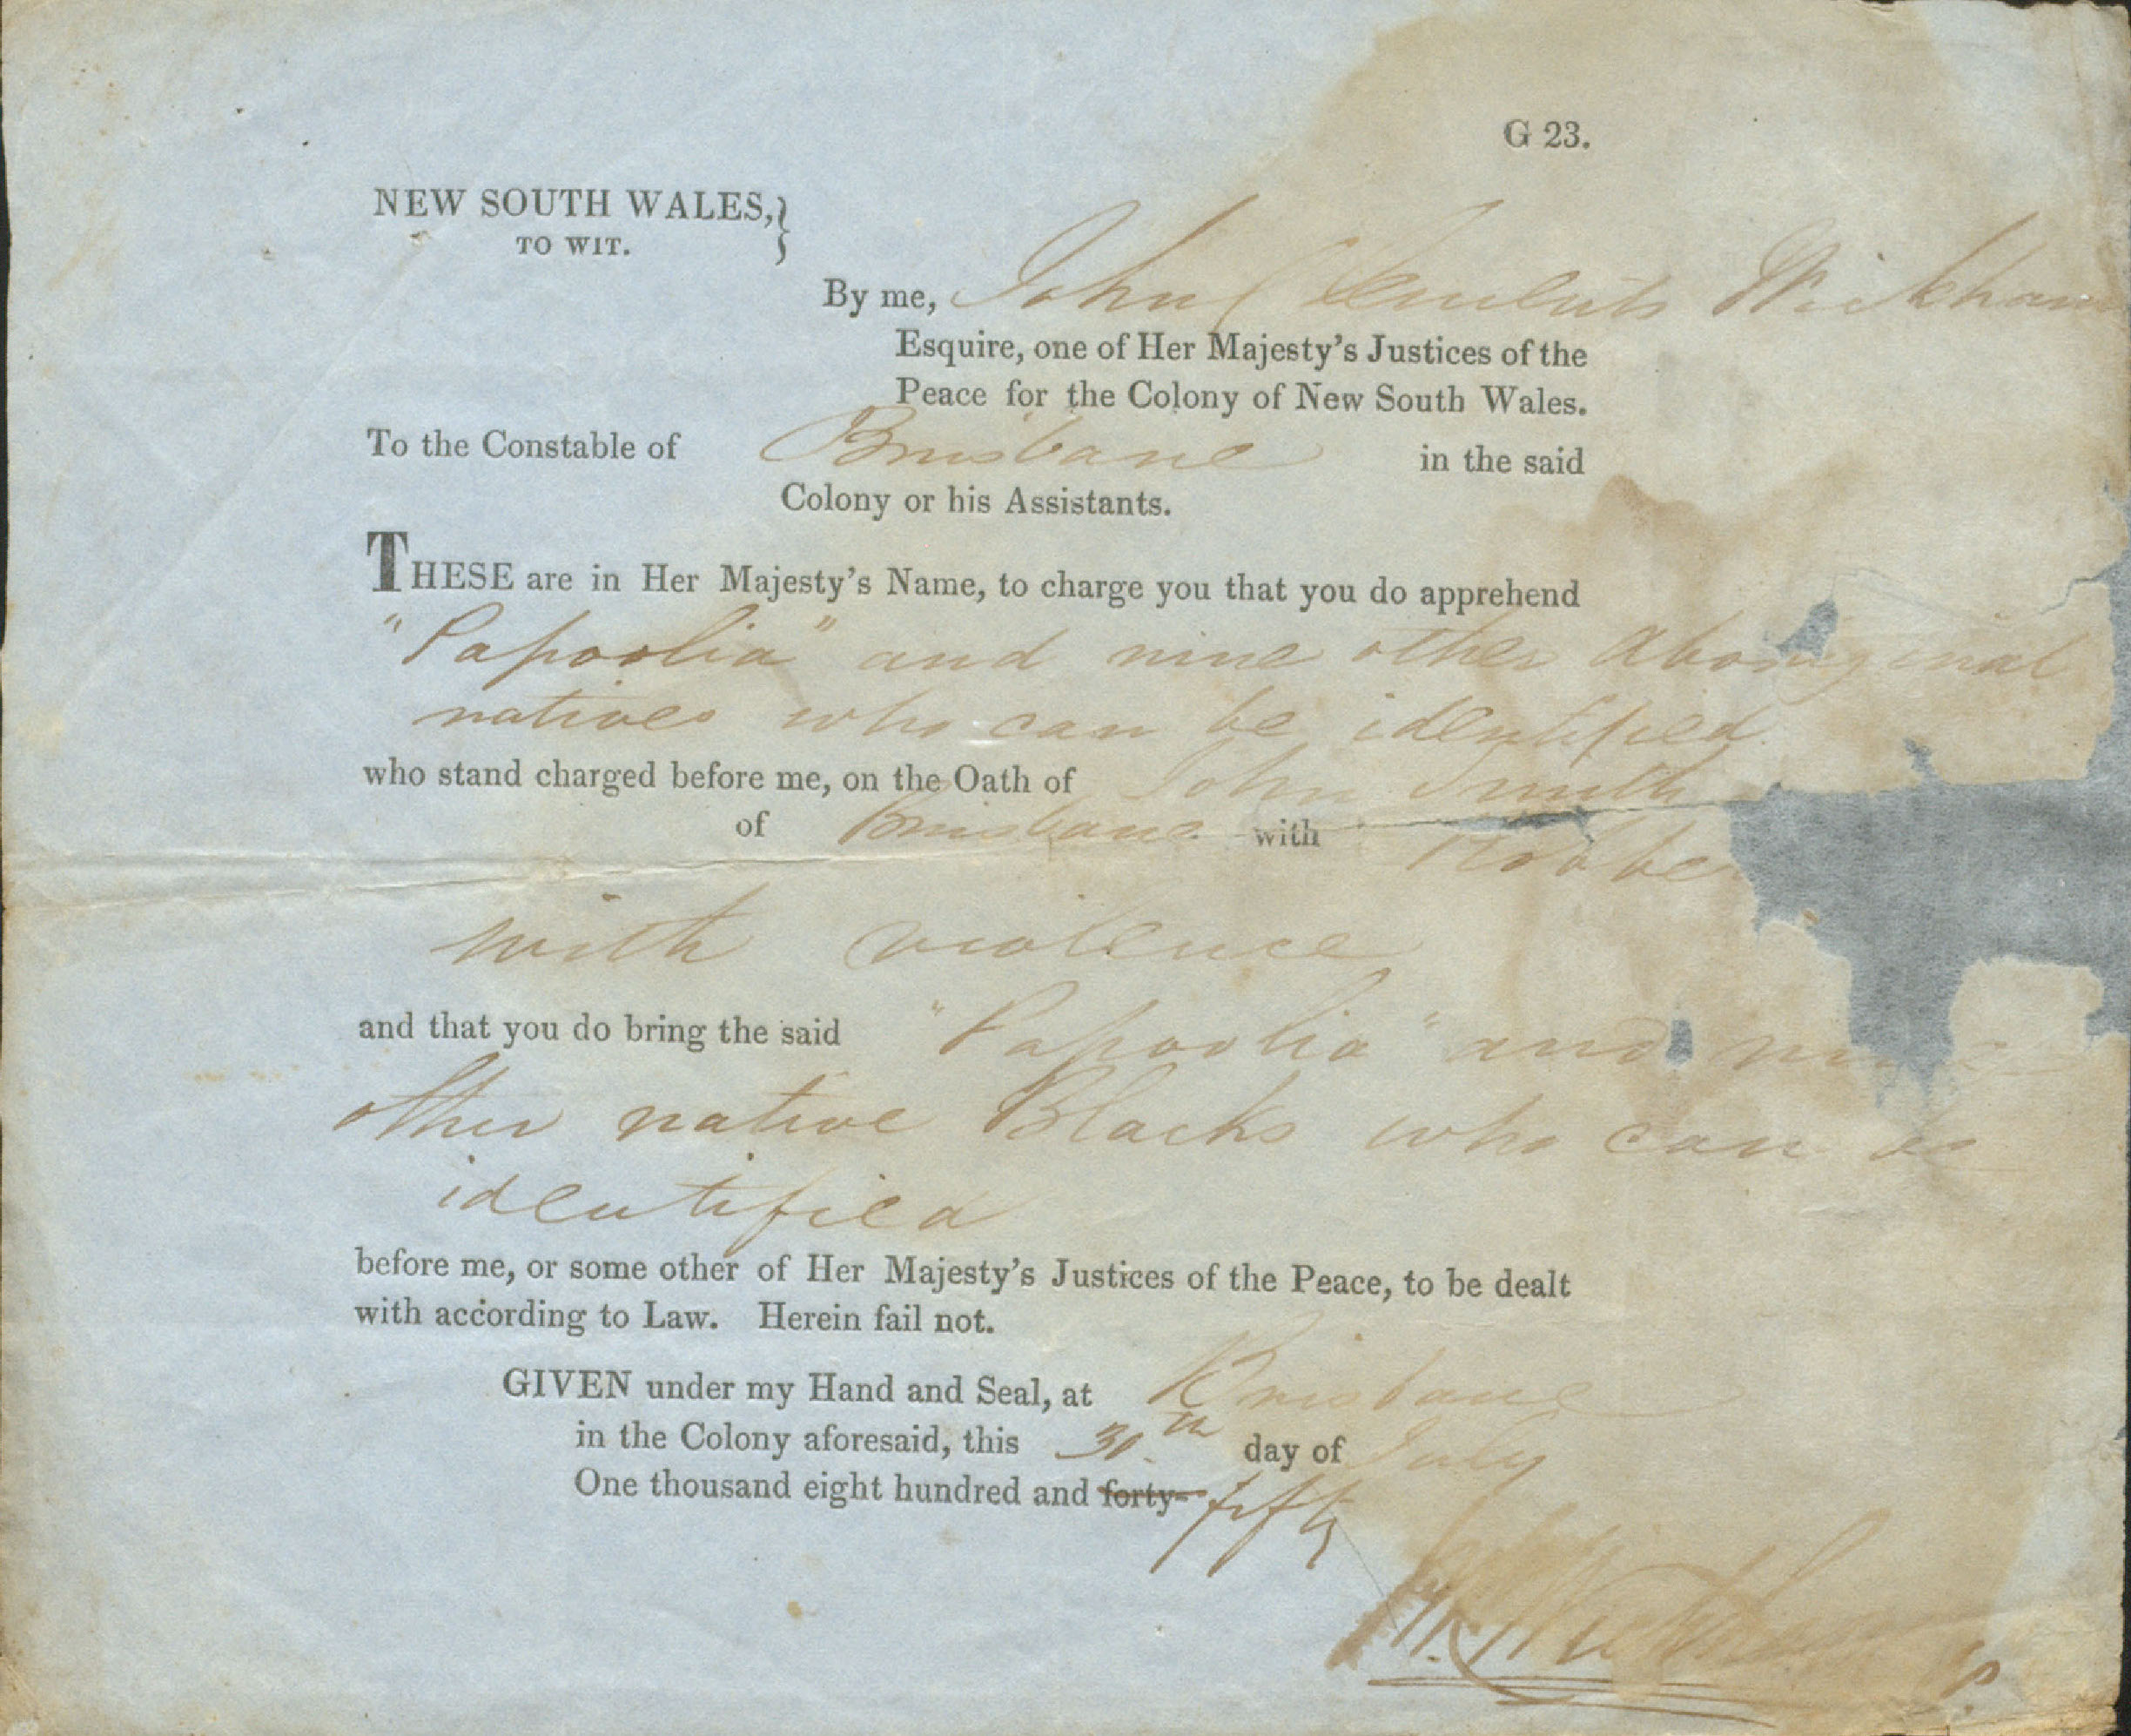 G 23.
NEW SOUTH WALES,}
TO WIT.
By me, John Clements Wickham
Esquire, one of Her Majesty's Justices of the
Peace for the Colony of New South Wales.
To the Constable of Brisbane in the said
Colony or his Assistants.
THESE are in Her Majesty's Name, to charge you that you do apprehend
"Papoolia" and nine other Aboriginal
natives who can be identified
who stand charged before me, on the Oath of John Smith
of Brisbane with Robbe
with violence
and that you do bring the said "Papoolia" and
other native Blacks who can be
identified
before me, or some other of Her Majesty's Justices of the Peace, to be dealt
with according to Law. Herein fail not.
GIVEN under my Hand and Seal, at Brisbane
in the Colony aforesaid, this 30th day of July
One thousand eight hundred and forty- fifty
Wickham